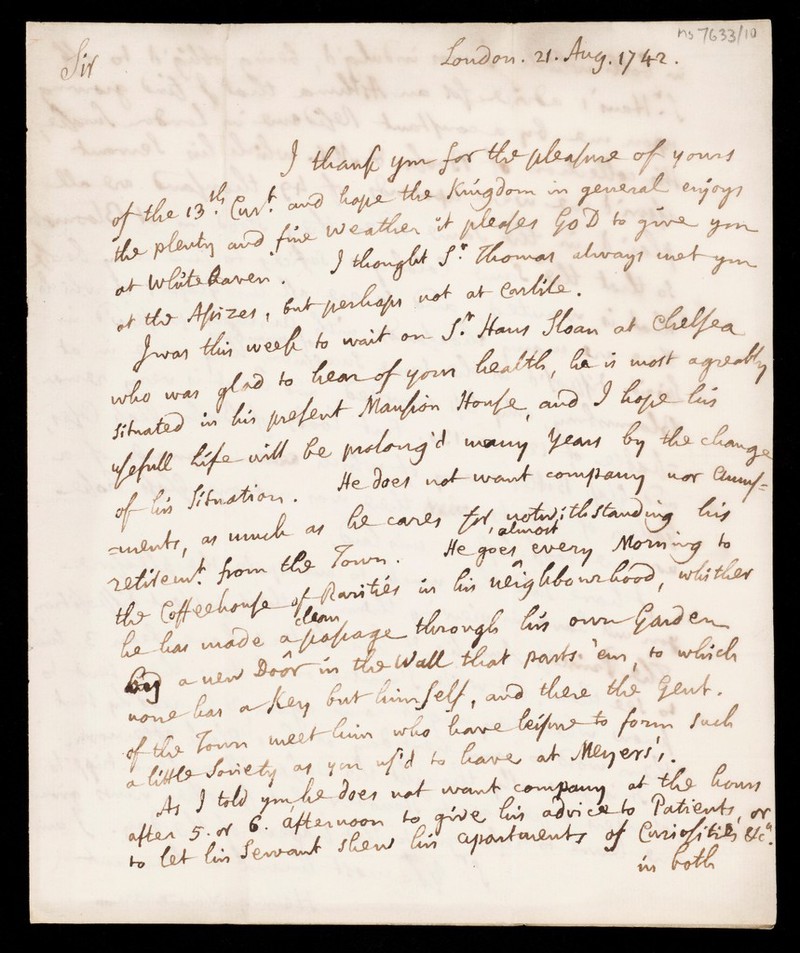 ms 7633/10
Sir
London. 21. Aug. 1742.
I thank you for the pleasure of yours
of the 13th. Curt. and hope the Kingdom in general enjoys
the plenty and fine weather it pleases GoD to give you
at Whitehaven. I thought Sr. Thomas always met you
at the Assizes, but perhaps not at Carlile.
I was this week to wait on Sr. Hans Sloan at Chelsea
who was glad to hear of your health, he is most agreably
situated in his present Mansion House, and I hope his
usefull Life will be prolong'd many Years by the change
of his Situation. He does not want company nor Amus=
=ments, as much as he cares for, notwithstanding his
retiremt. from the Town. He goes almost every Morning to
the Coffeehouse of Rarities in his neighbourhood, whither
he has made a clean passage through his own Garden
by a new Door in the Wall that parts 'em, to which
none has a Key but himself, and there the Gent.
of the Town meet him who have leisure to form such
a little Society as you us'd to have at Meyers's.
As I told you, he does not want company at the hours
after 5. or 6. afternoon to give his advice to Patients, or
to let his Servant shew his apartments of Curiosities &ca.
in both